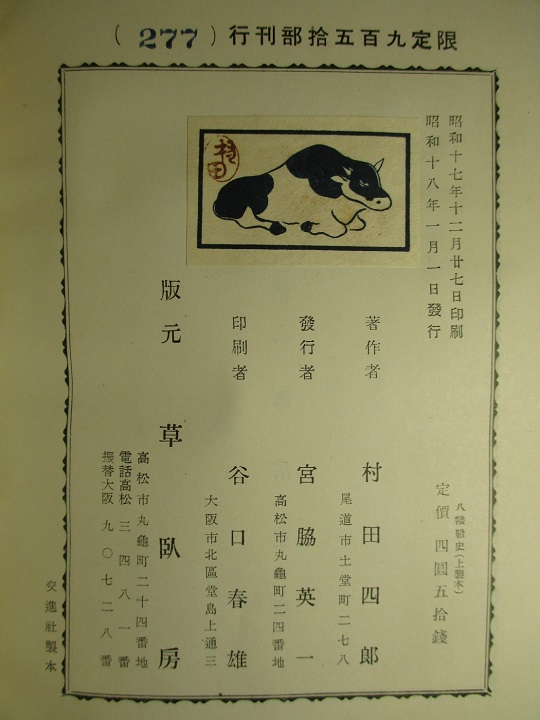 限定九百五拾部刊行（277）
昭和十七年十二月廿七日印刷
昭和十八年一月一日發行
村田
八幡船史（上製本）
定價 四圓五拾錢
著作者 村田四郎
尾道市土堂町二七八
發行者 宮脇英一
高松市丸龜町二四番地
印刷者 谷口春雄
大阪市北區堂島上通三
版元 草臥房
高松市丸龜町二十四番地
電話高松 三四八一番
振替大阪 九〇七二八番
交進社製本